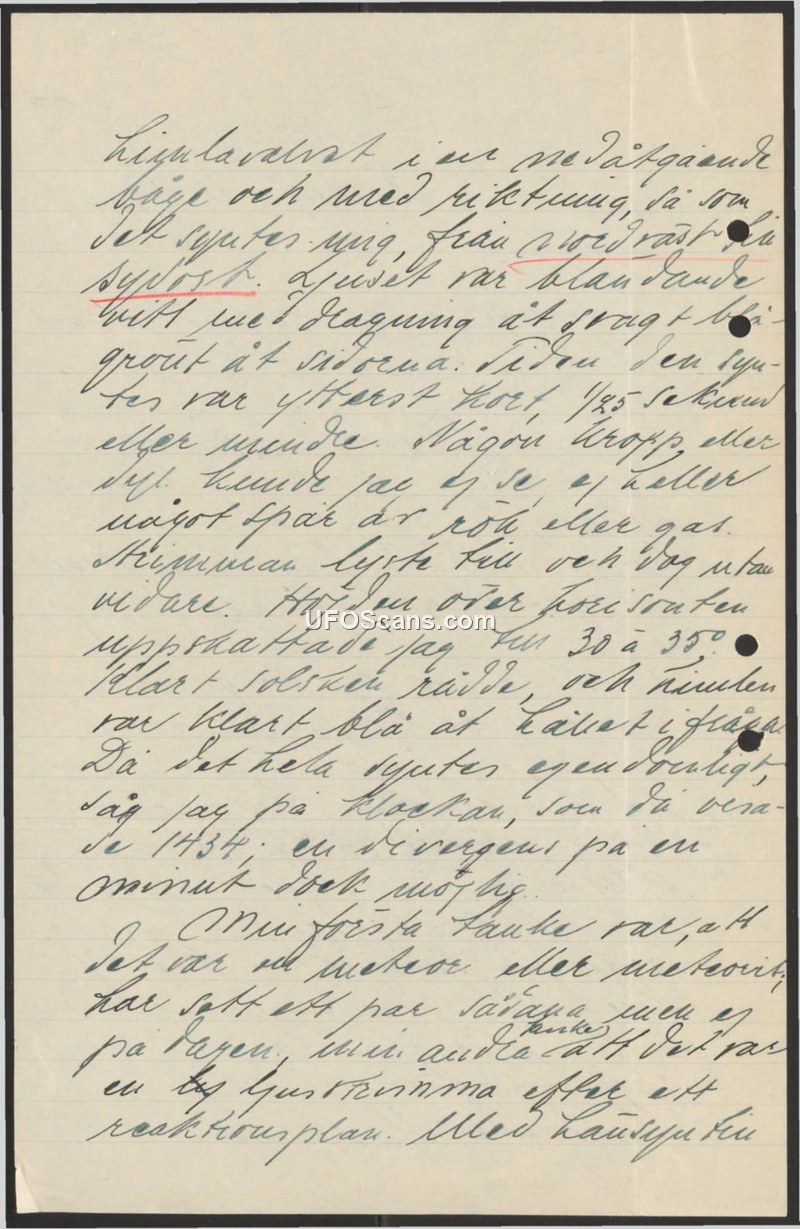 himlavalvet i en nedåtgående
båge och med riktning, så som
det syntes mig, från nordväst till
sydost. Ljuset var bländande
vitt med dragning åt svagt blå-
grönt åt sidorna. Tiden den syn-
tes var ytterst kort, 1/25 sekund
eller mindre. Någon kropp eller
dyl. kunde jag ej se, ej heller
något spår av rök eller gas.
Strimman lyste till och dog utan
vidare. Höjden över horisonten
UFOScans.com
uppskattade jag till 30 à 35°.
Klart solsken rådde, och himlen
var klart blå åt hållet i fråga.
Då det hela syntes egendomligt,
såg jag på klockan, som då visa-
de 1434; en divergens på en
minut dock möjlig.
Min första tanke var, att
det var en meteor eller meteorit;
har sett ett par sådana men ej
på dagen, min andra tanke att det var
en ljusstrimma efter ett
reaktionsplan. Med hänsyn till